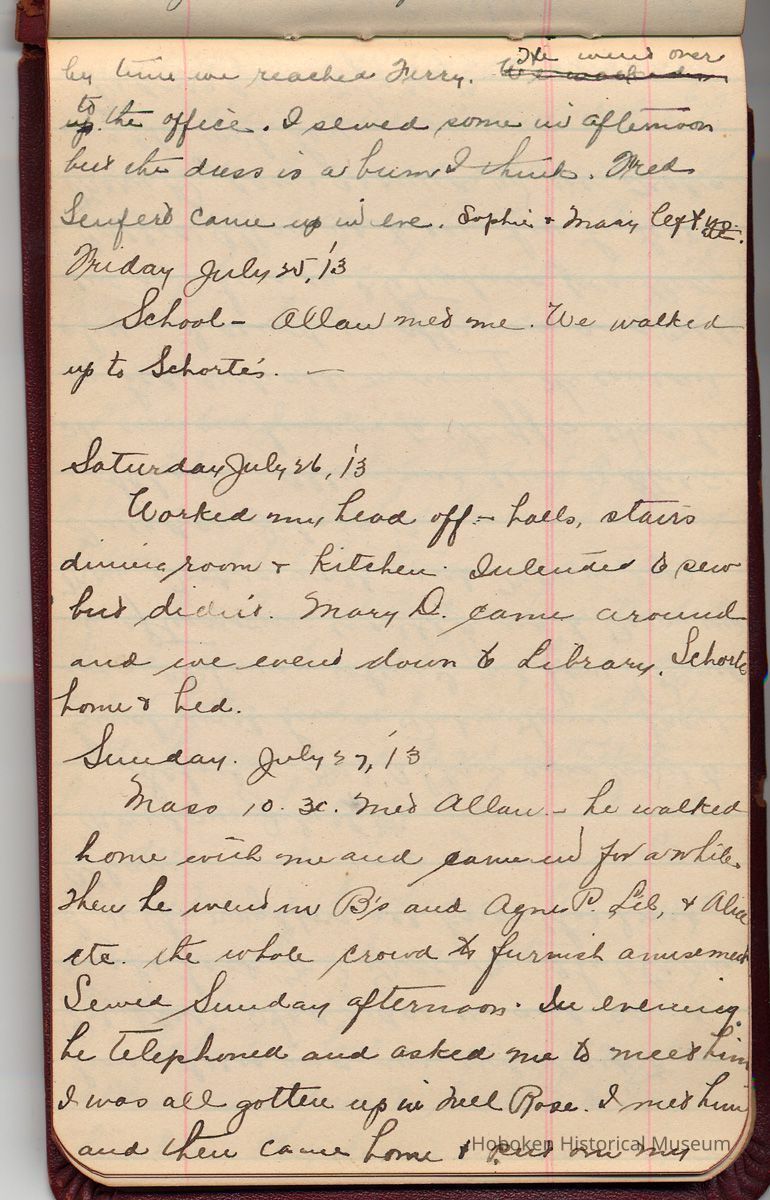 by time we reached Ferry. He went over
to the office. I sewed some in afternoon
but the dress is a bum I think. Fred
Seufert came up in eve. Sophie + Mary left
Friday July 25, '13
School - Allan met me. We walked
up to Schorte's. —
Saturday July 26, '13
Worked my head off - halls, stairs
dining room + kitchen. Intended to sew
but didn't. Mary D. came around
and we went down to Library. Schorte
home + bed.
Sunday. July 27, '13
Mass 10.30. Met Allan - he walked
home with me and came in for a while
then he went in B's and Agnes P. Lil, + Alice
etc. the whole crowd to furnish amusement
Sewed Sunday afternoon. In evening
he telephoned and asked me to meet him
I was all gotten up in Nell Rose. I met him
and then came home + put on my
Hoboken Historical Museum